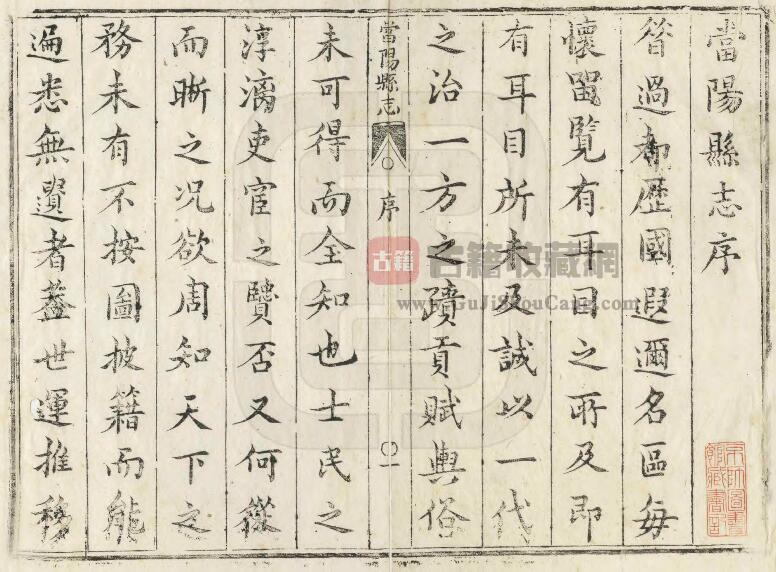 當陽縣志序
過都歴國遐邇名區每
懷畱覽有耳目之所及即
有耳目所未及誠以一代
之治一方之蹟貢賦輿俗
當陽縣志
序
一
未可得而全知也士民之
淳漓吏宦之贒否又何從
而晰之况欲周知天下之
務未有不按圖披籍而能
遍悉無遺者葢世運推移
京師圖書
館藏書記
古籍
古籍收藏網
www.GuJiShouCang.com